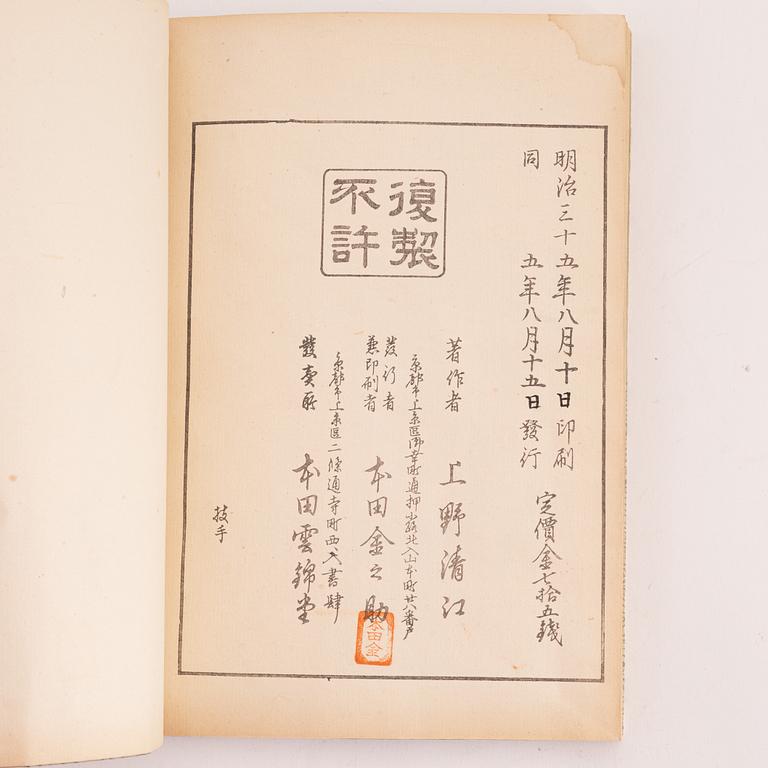 明治三十五年八月十日印刷
同　五年八月十五日發行
定價金七拾五錢
復製
不許
著作者　上野清江
京都市上京區御幸町通押小路北入山本町廿八番戸
發行者
兼印刷者　本田金之助
本田金
京都市上京區二條通寺町西入書肆
發賣所　本田雲錦堂
技手